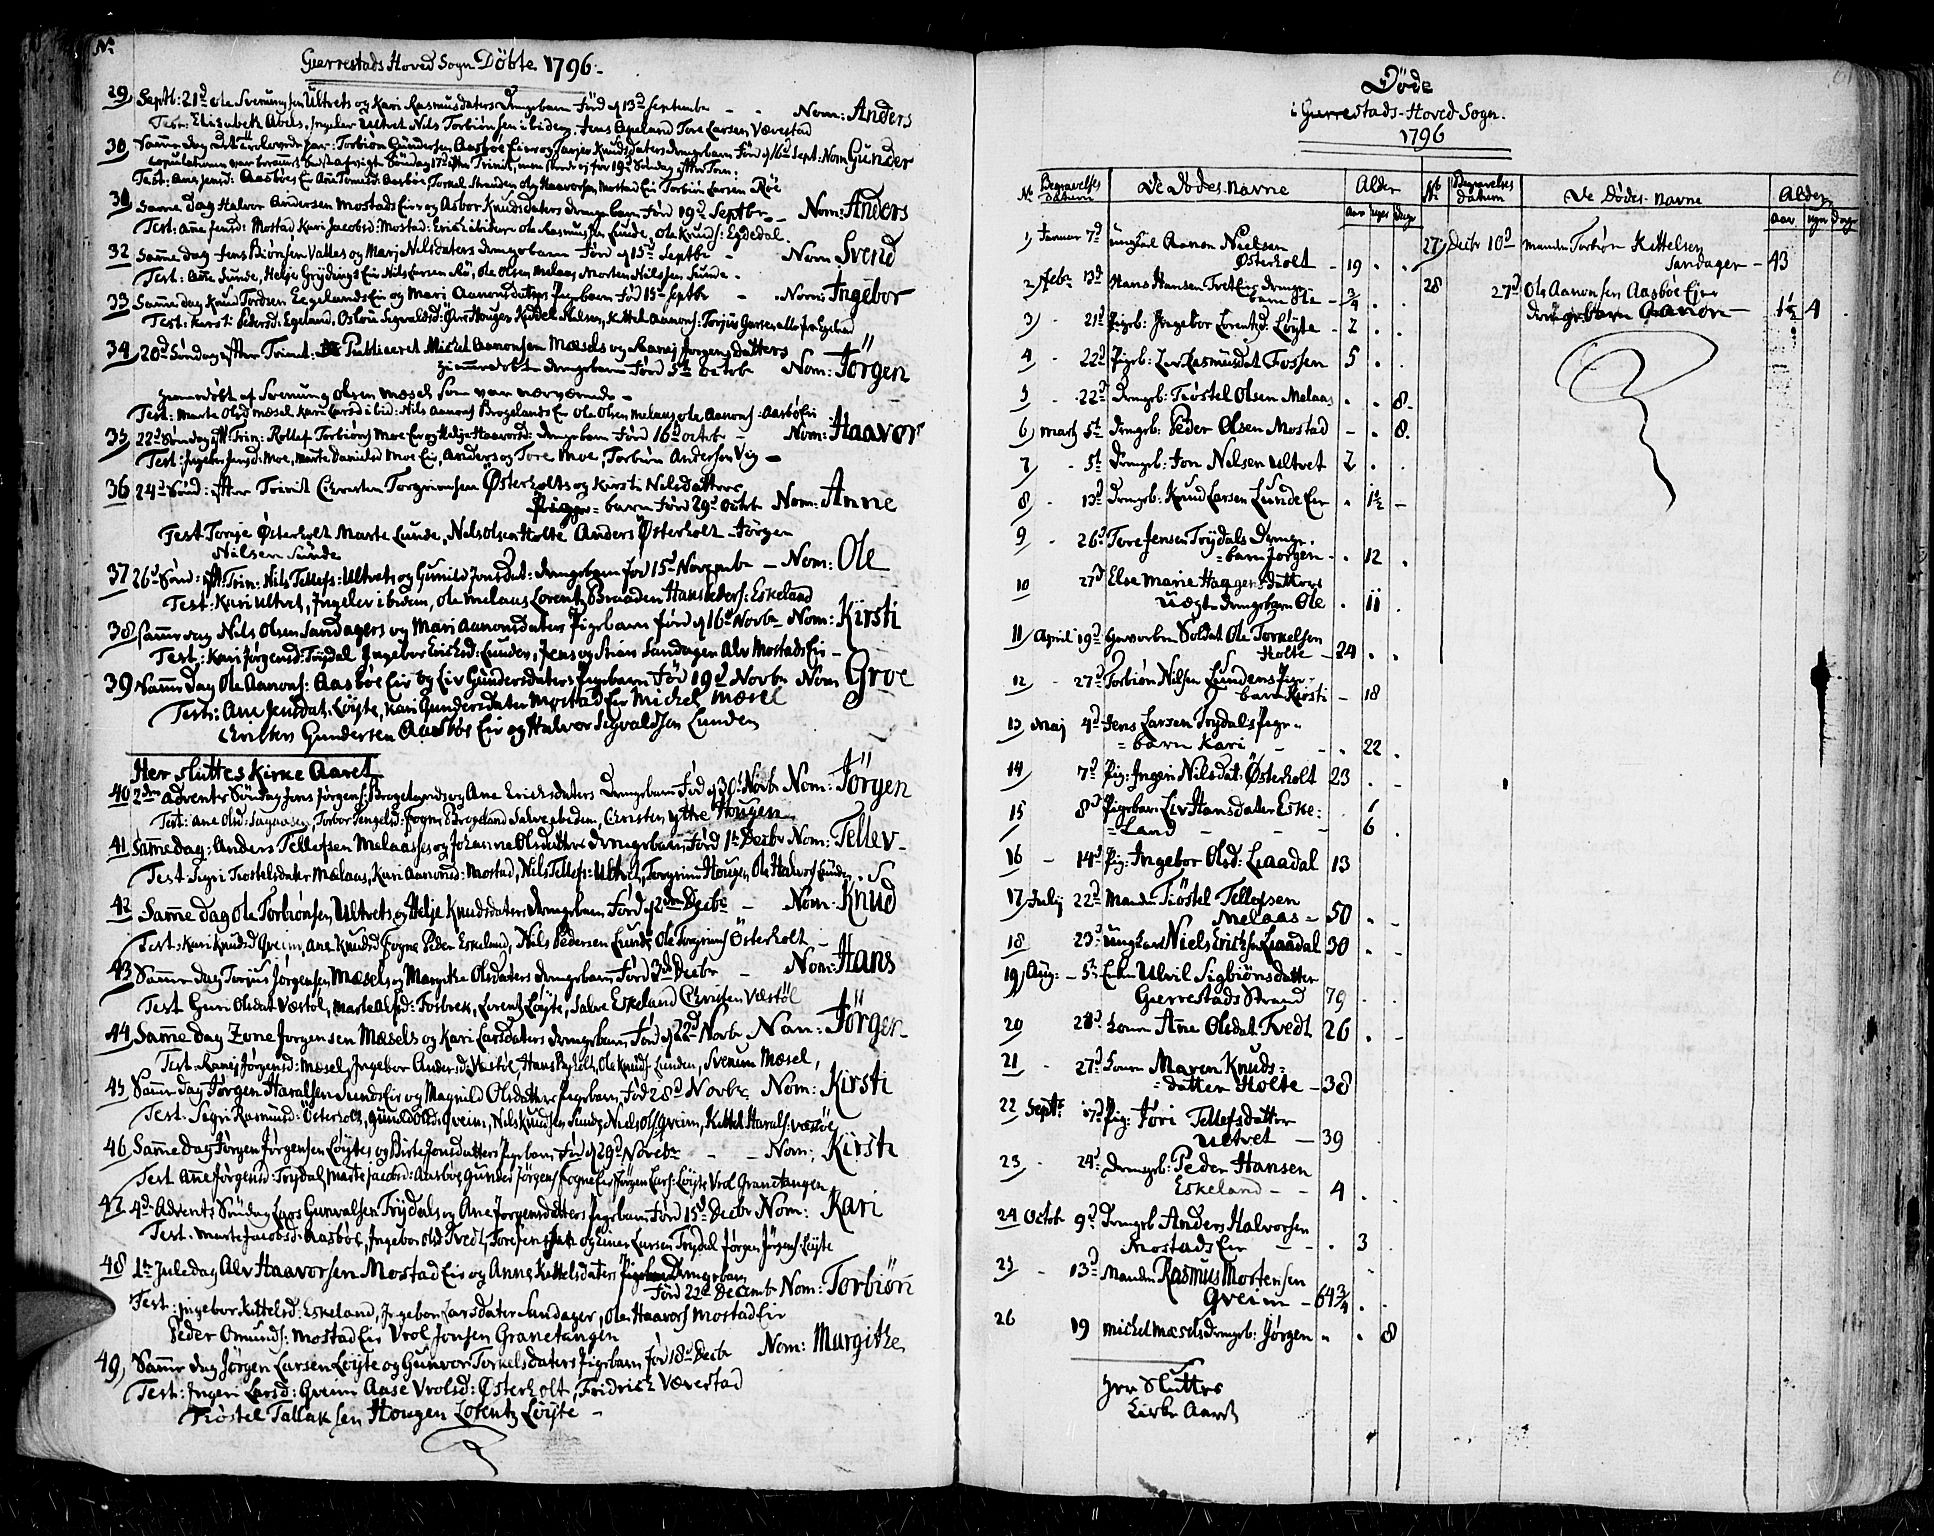 No
Gierrestads Hoved Sogn Döbte 1796.
29 Septb: 21d Ole Svenungsen Ultvets og Kari Rasmusdaters Drengebarn Föd d 13d Septembr - - Nom: Anders
Test: Elisabeth Abels, Ingeler Ultvet Nils Torbiönsen ibidem, Jens Aveland Tore Larsen Vævestad
30 Samme dag Torbiön Gundersen Aasböe Eier og Knudsdaters drengebarn Föd d 16d Sept: Nom Gunder
Copulationen var Söndag 17d efter Trinit, men skede ej för 19d Söndag efter Trin:
Test: Aasböe Eie Ane Aasböe, Torkel Stranden Ole Haavorsen Mostad Eie Torbiör Larsen Röe
31 Samme dag Halvor Andersen Mostads Eie og Asbor Knudsdaters drengebarn Föd 19d Septbr - Nom: Anders
Test: Ane Jensd: Mostad Kari Jacobsd: Mostad: Eric Ole Rasmussen Lunde, Ole Knuds: Egdedal
32 Samme dag Jens Biönsen Valles og Mari Nelsdaters drengebarn Föd d 15d Septbr - Nom Svend
Test: Ane Sunde, Helje Grydings Eie Nils Larsen Rö, Ole Olsen Melaas Morten Nilssen Sunde -
33 Samme dag Knud Tordsen Eegelands Eie og Mari Aanonsdaters Pigebarn Föd 15d Septbr - Nom: Ingebor
Test: Karsti Pedersd: Egeland, Oslou Segvaldsd: Hougen Kiddel Nelsen, Kittel Aanons: Torjus
34 20d Söndag efter Trinit: Publiceret Michel Aanonsen Mæsels og Ranej Jorgensdatters
hiemmedöbt drengebarn Föd 5te Octob Nom: Jörgen
hiemmedöbt af Svenung Olsen Mæsel Som var nærværende -
Test: Marte Olsd Mæsel Kari Larsd ibid: Nils Aanons Brogelands Eie Ole Olsen Melaas Ole Aanons: Aasbö Eie
35 22d Söndag eft Trin: Rollef Torbiöns Moe Eie og Helje Haavorsd: drengebarn Föd 16d Octobr - Nom: Haavor
Test: Ingebor Jensd: Moe, Marte Danielsd Moe Eie, Anders og Tore Moe, Torbiön Andersen Vig -
36 24d Sönd: efter Trinit Christen Torgrimsen Österholts og Kirsti Nilsdatters
Pige= barn Föd 29d Octbr Nom: Anne
Test Torje Österholt Marte Lunde, Nels Olsen Holte Anders Österholt - Jörgen
Nilsen Sunde
37 26d Sönd: eft: Trin: Nils Tellefs: Ultvets og Gunild Jonsdat: drengebarn föd 15d Novembr - Nom: Ole
Test: Kari Ultvet, Ingeler ibidem, Ole Melaas Lorentz Braaden Hans Peders: Eskeland
38 Samme dag Nils Olsen Sandagers og Mari Aanonsdaters Pigebarn föd d 16d Novbr Nom: Kirsti
Test: Kari Jörgensd: Trydal Ingebor Ericksd: Lunden, Jens og Stian Sandager Alv Mostads Eie -
39 Samme dag Ole Aanons: Aasböe Eie og Liv Gundersdaters Pigebarn Föd 19d Novbr Nom Groe
Test: Ane Jensdat. Löyte, Kari Gundersdater Mostad Eie Michel Mæsel
Christen Gundersen Aasböe Eie og Halvor Segvaldsen Lunden
Her sluttes Kirke Aaret
40 2den Advents Söndag Jens Jörgens: Brogelands og Ane Ericksdaters Drengebarn Föd d 30d Novb Nom: Jörgen
Test: Ane Olsd: Torbor Tengelsd: Fogne Brogeland Salve ibidem, Christen ytre Hougen
41 Samme dag: Anders Tellefsen Melaases og Johanne Olsdatters drengebarn, Föd 1te Decbr Nom: Tellev-
Test: Sigri Tiostelsdater Melaas, Kari Aanonsd: Mostad, Nils Tellefs: Ultvet, Torgrim Hougen, Ole Halvors Lunden
42 Samme dag Ole Torbiönsen Ultvets og Helje Knudsdaters drengebarn, Föd d 2den Decbr - Nom: Knud
Test: Kari Knudsd Gveim, Ane Knudsd Fogne Peder Eskeland, Nils Pedersen Lunde Ole Torgrims Österholt -
43 Samme dag Torjus Jörgensen Mæsels og Margithe Olsdaters drengebarn, Föd 3d Decbr - Nom: Hans
Test Guri Olsdat Væstöl, Marte Olsd: Fosbrek, Lorentz Löyte, Salve Eskeland Christen Væstöl
44 Samme dag Zone Jorgensen Mæsels og Kari Larsdaters drengebarn, Föd d 22d Novbr Nom: Jörgen -
Test Ranej Jörgensd: Mæsel, Ingebor Andersd: Væstöl, Hans Ole Knuds Lunden, Svenum Mæsel,
45 Samme dag Jörgen Haralsen Sunds Eie og Magnild Olsdatter Pigebarn, Föd 28d Novbr Nom: Kirsti
Test: Segri Rasmusd: Österholt, Gunild Olsd: Gveim, Nils Knudsen Sunde Niels Ols: Gveim, Kittel Harals: Væstöl
46 Samme dag Jörgen Jörgensen Löytes og Birte Jonsdatters Pigebarn, föd d 29d Novbr - - Nom: Kirsti
Test Ane Jörgensd: Trydal, Marte Jacobsd: Aasböe Gunder Jörgens Fogne Eie Jörgen Lars: Löyte Vrol Granetangen
47 4de Advents Söndag Lars Gunvalsen Trydals og Ane Jorgensdatters Pigebarn Föd 15d Decbr Nom: Kari
Test. Marte Jacobsd: Aasböe, Ingebor Olsd: Tvedt, Tore Jens og Einer Larsen Trydal Jörgen Jörgens: Löyte
48 1te Juledag Alv Haavorsen Mostad Eie og Anne Kettelsdaters Drengebarn
Föd 22d Decembr Nom: Torbiörn
Test: Ingebor Kittelsd: Eskeland, Ingebor Larsdater Sandager, Ole Haavors Mostad Eie
Peder Omunds: Mostad Eie Vrol Jonsen Granetangen
49 Samme dag Jörgen Larsen Löyte og Gunvor Torkelsdaters Pigebarn föd 18d Decbr Nom: Margithe
Test: Ingeri Larsd: Gveim Aase Vrolsd: Österholt, Fridrich Vævestad
Tiöstel Tallaksen Hougen Lorentz Löyte -
61
Döde
i Gierrestads-Hoved Sogn.
1796
No Begravelses Datum De Dödes-Navne Alder
Aar uger Dage
1 Januar 7d ungkarl Aanon Nielsen
Österholt - 19 . .
2 Febr 13d Hans Hansen Tvet Eie drenge=
barn Ole - 3/4 . .
3 - 21d Pigeb: Ingebor Lorentzd: Löyte - 2 . .
4 - 22d Pigeb: Liv Rasmusdat Fossen 5 .
5 - 22d Drengeb: Tiöstel Olsen Melaas . . 8.
6 Marti 5te drengeb: Peder Olsen Mostad - . 8.
7 - 5te Drengeb: Jon Nelsen Ultvet 2 . .
8 - 13d Drengeb: Knud Larsen Lunde Eie . 1 1/2 -
9 - 26d Tore Jensen Trydals Drenge=
=barn Jorgen - . 12 .
10 27d Else Marie Haagensdatters
uægte drengebarn Ole . 11 .
11 April 19d Gevorben Soldat Ole Torkelsen
Holte - 24 . .
12 - 27d Torbiön Nilsen Lundens Pige-
barn Kirsti - 18
13 Maj 4d Jens Larsen Trydals Pige-
= barn Kari - - . 22 .
14 7d Pig: Ingeri Nilsdat: Österholt 23 . -
15 8d Pigebarn Liv Hansdater Eske=
=land - - - 6 .
16 - 14d Pig: Ingebor Olsd: Laadal 13
17 Julij 22d Manden Tiöstel Tellefsen
Melaas - 50 . -
18 23d ungkarl Niels Erichsen Laadal 30 . -
19 Aug: - 5te Enken Ulvil Sigbiörnsdatter
Gierrestads Strand 79 . .
20 28d Konen Anne Olsdat Tvedt 26 . -
21 - 27d Konen Maren Knuds=
=datter Holte - 38
22 Septr 17d Pig: Jöri Tellefsdatter
Ultvet - 39
23 - 24d Drengeb: Peder Hansen
Eskeland - - 4 . .
24 Octob 9d Drengeb Anders Halvorsen
Mostads Eie - - . 3
25 - 13d Manden Rasmus Mortensen
Gveim - 64 3/4 . .
26 19 Michel Mæsels drengeb: Jörgen . . 8
Her Sluttes
Kirke Aaret
No Begravelses datum De Dödes-Navne Alder
Aar uger Dage
27 Decbr 10d Manden Torbiön Kittelsen
Sandager - 43
28 27d Ole Aanonsen Aasböe Eies
drengebarn Aanon - 1 1/2 4 .